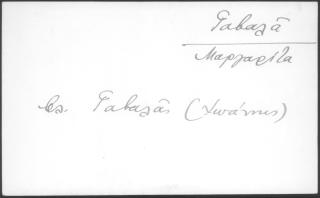 Γαβαλᾶ
Μαργαρίτα
βλ. Γαβαλᾶς (Ἰωάννης)